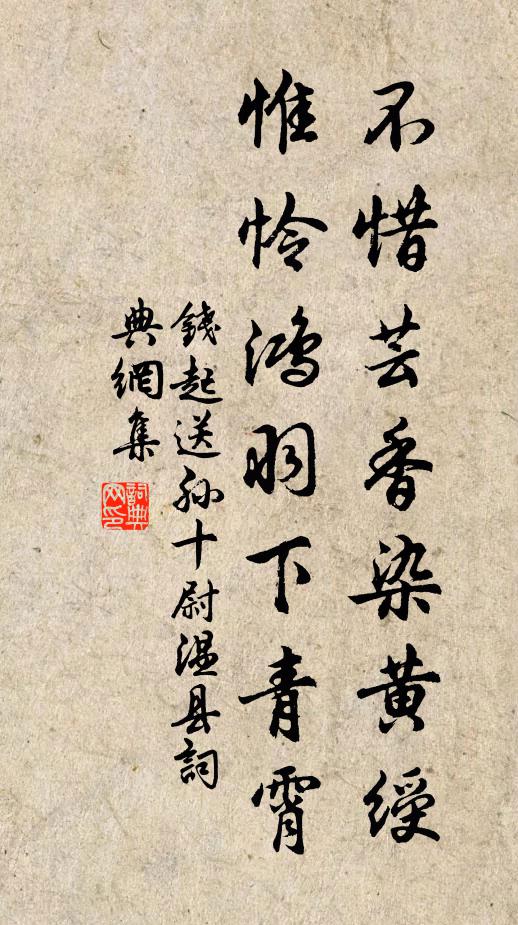 不惜芸香染黄綬
惟怜鴻羽下青霄
錢起送孙十尉温县詞
典網集
詞典
网印